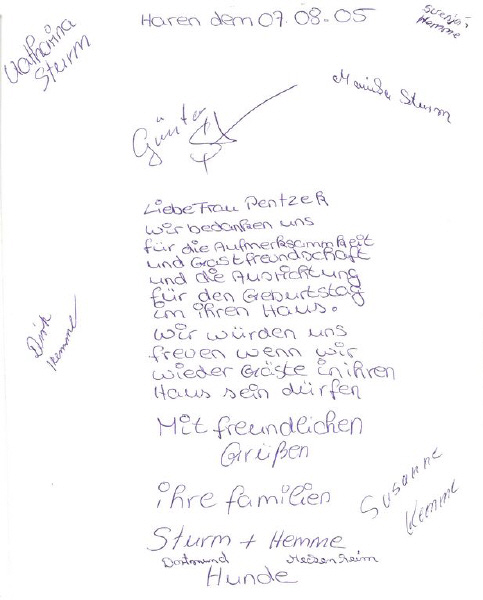 Haren dem 07.08-05
Hemme
Katharina
Sturm
Sturm
Günter
Liebe Frau Pentzek
wir bedanken uns
für die Aufmerksammkeit
und Gastfreundschaft
und die Ausrichtung
für den Geburtstag
im ihren Haus.
Wir würden uns
freuen wenn wir
wieder Gäste in ihren
Haus sein dürfen
Dirk
Hemme
Mit freundlichen
Grüßen
Susanne
Hemme
ihre familien
Sturm + Hemme
Dortmund
Hunde